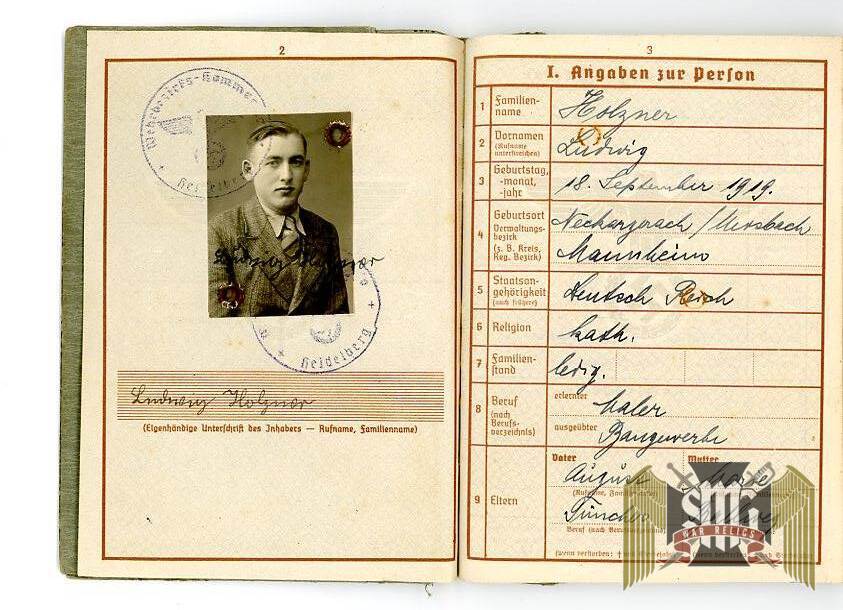 2
Wehrbezirks-Komman
Heidelberg
Heidelberg
Ludwig Holzner
Ludwig Holzner
(Eigenhändige Unterschrift des Inhabers — Rufname, Familienname)
3
I. Angaben zur Person
1 Familien-name Holzner
2 Vornamen (Rufname unterstreichen) Ludwig
3 Geburtstag, -monat, -jahr 18. September 1919.
4 Geburtsort Verwaltungs-bezirk (z. B. Kreis, Reg. Bezirk) Neckargerach / Mosbach
Mannheim
5 Staatsan-gehörigkeit (auch frühere) Deutsch Reich
6 Religion kath.
7 Familien-stand ledig.
8 Beruf (nach Berufs-verzeichnis) erlernter Maler
ausgeübter Baugewerbe
Vater Mutter
9 Eltern August
Tüncher
SMG
WAR RELICS